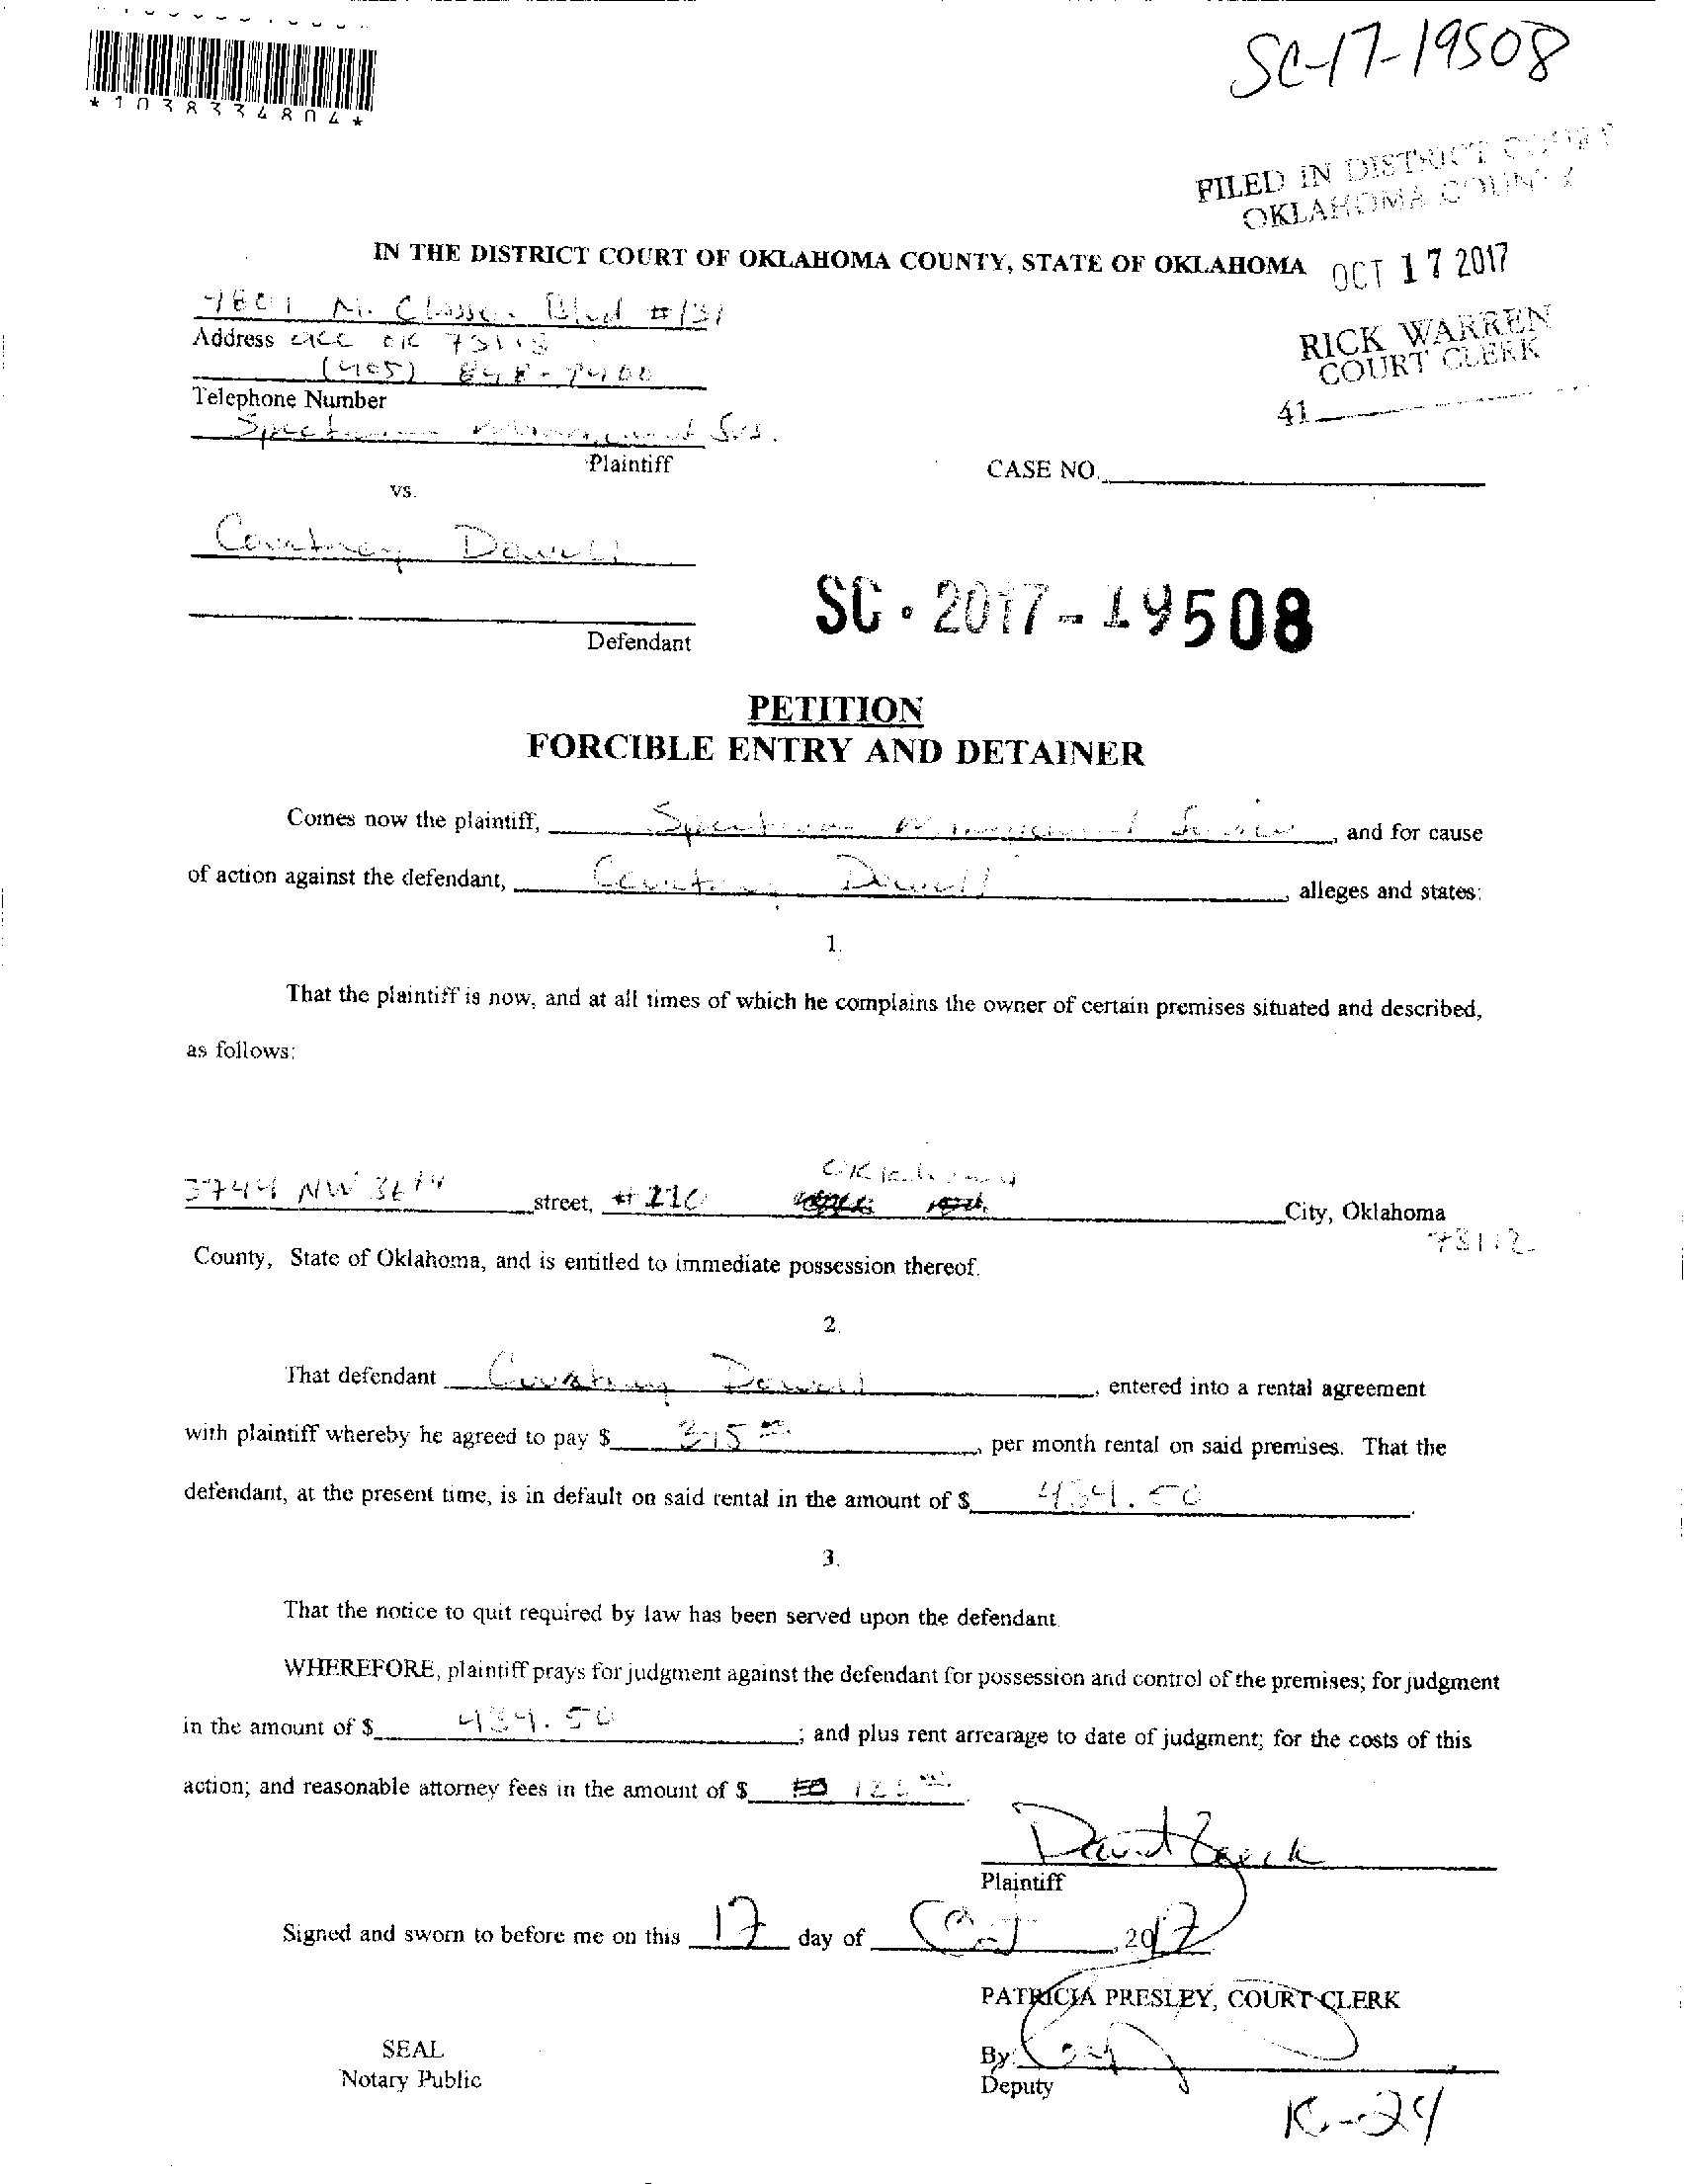 *1038334804*
SC-17-19508
FILED IN DISTRICT COURT
OKLAHOMA COUNTY
IN THE DISTRICT COURT OF OKLAHOMA COUNTY, STATE OF OKLAHOMA
OCT 17 2017
4801 N. Classen Blvd #131
Address OKC OK 73118
RICK WARREN
COURT CLERK
(405) 848-7400
Telephone Number
41
Spectrum Management Svs.
Plaintiff
CASE NO.
vs.
Courtney Dowell
SC-2017-19508
Defendant
PETITION
FORCIBLE ENTRY AND DETAINER
Comes now the plaintiff, Spectrum Management Services, and for cause
of action against the defendant, Courtney Dowell, alleges and states:
1.
That the plaintiff is now, and at all times of which he complains the owner of certain premises situated and described,
as follows:
3744 NW 36th street, #210 Oklahoma City, Oklahoma
73112
County, State of Oklahoma, and is entitled to immediate possession thereof.
2.
That defendant Courtney Dowell, entered into a rental agreement
with plaintiff whereby he agreed to pay $, per month rental on said premises. That the
defendant, at the present time, is in default on said rental in the amount of $ .50.
3.
That the notice to quit required by law has been served upon the defendant.
WHEREFORE, plaintiff prays for judgment against the defendant for possession and control of the premises; for judgment
in the amount of $ .50; and plus rent arrearage to date of judgment; for the costs of this
action; and reasonable attorney fees in the amount of $.
Plaintiff
Signed and sworn to before me on this 17 day of Oct, 2017
PATRICIA PRESLEY, COURT CLERK
SEAL
Notary Public
By
Deputy
K-24